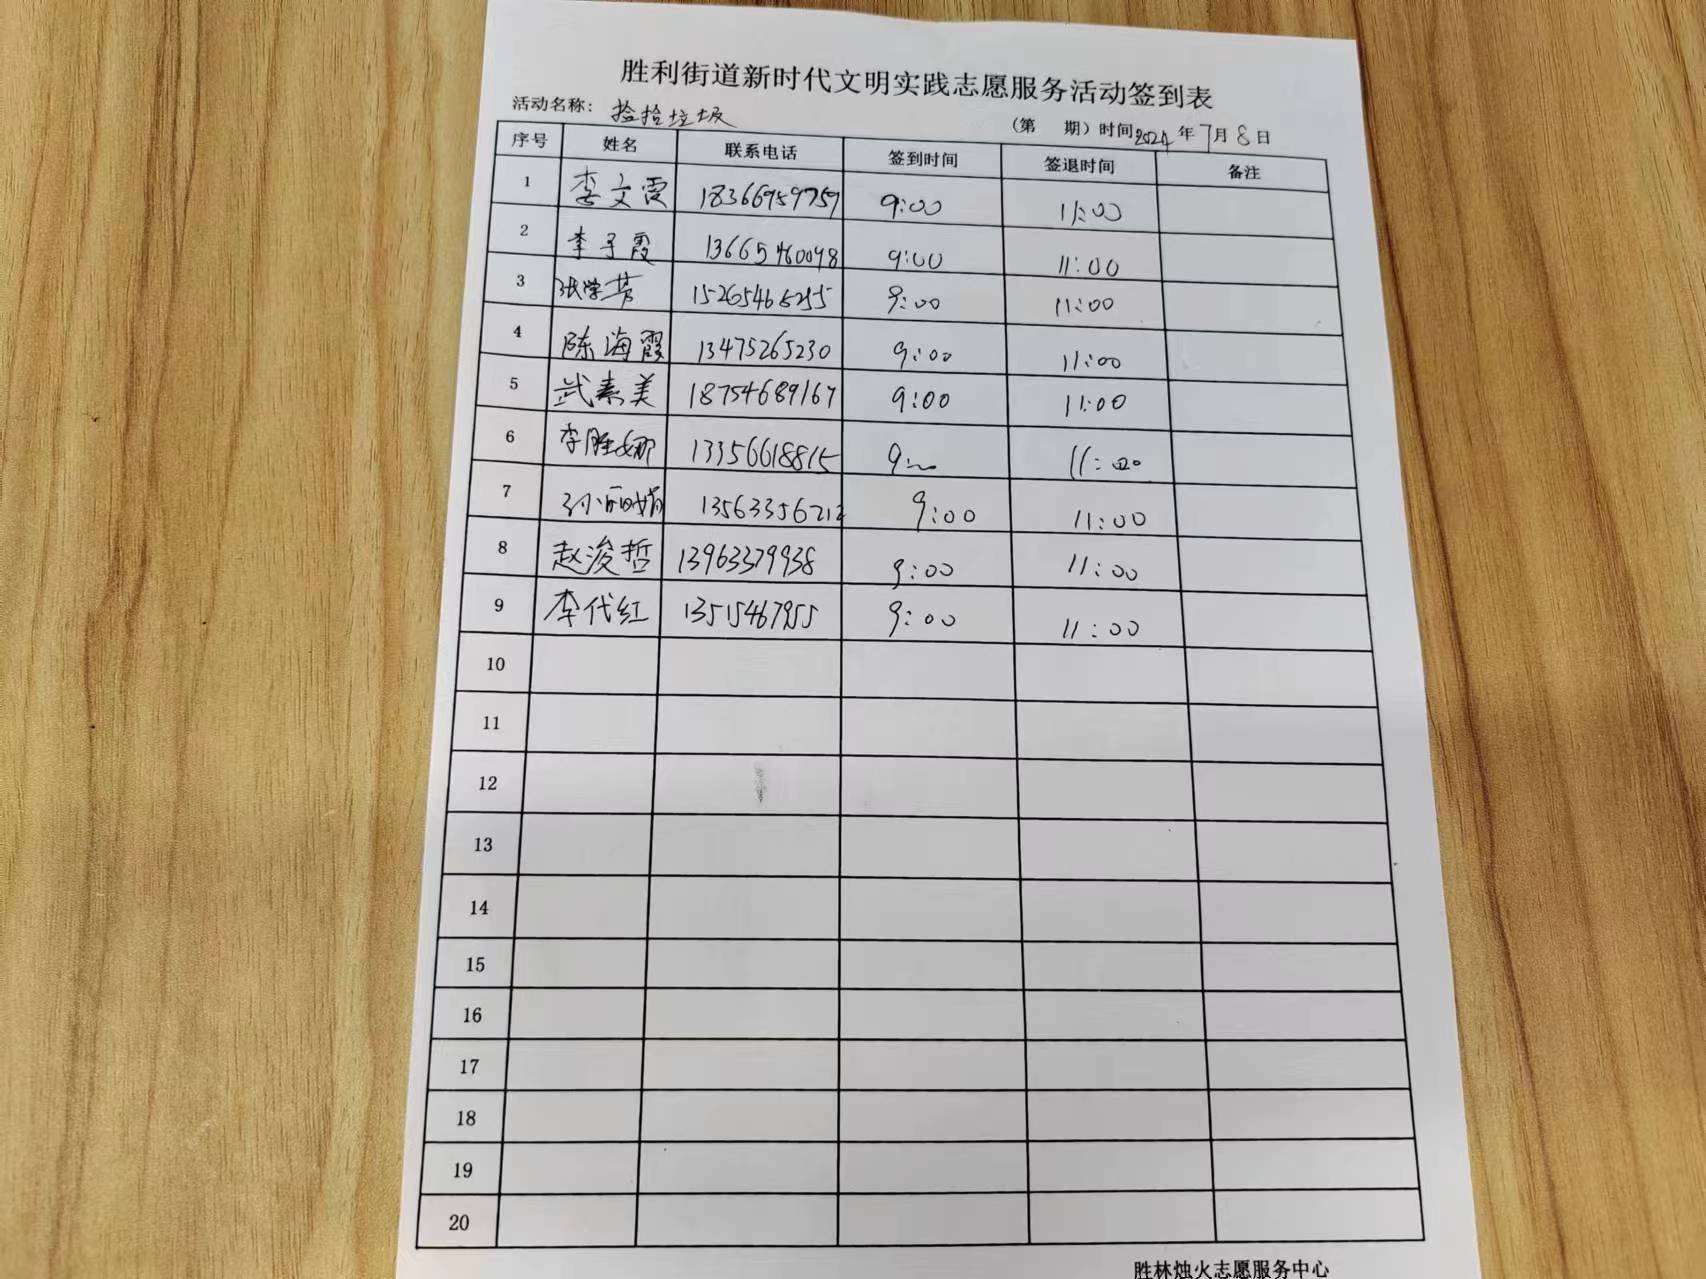 胜利街道新时代文明实践志愿服务活动签到表
活动名称：捡拾垃圾 （第 期）时间2024年7月8日
序号 姓名 联系电话 签到时间 签退时间 备注
1 李文霞 18366959759 9:00 11:00
2 李子霞 13665460098 9:00 11:00
3 张学芳 9:00 11:00
4 陈海霞 13475265230 9:00 11:00
5 武素美 18754689167 9:00 11:00
6 李胜娜 13356618815 9: 11:00
7 孙丽娟 13563356212 9:00 11:00
8 赵浚哲 13963379938 9:00 11:00
9 李代红 13515467955 9:00 11:00
10
11
12
13
14
15
16
17
18
19
20
胜林烛火志愿服务中心